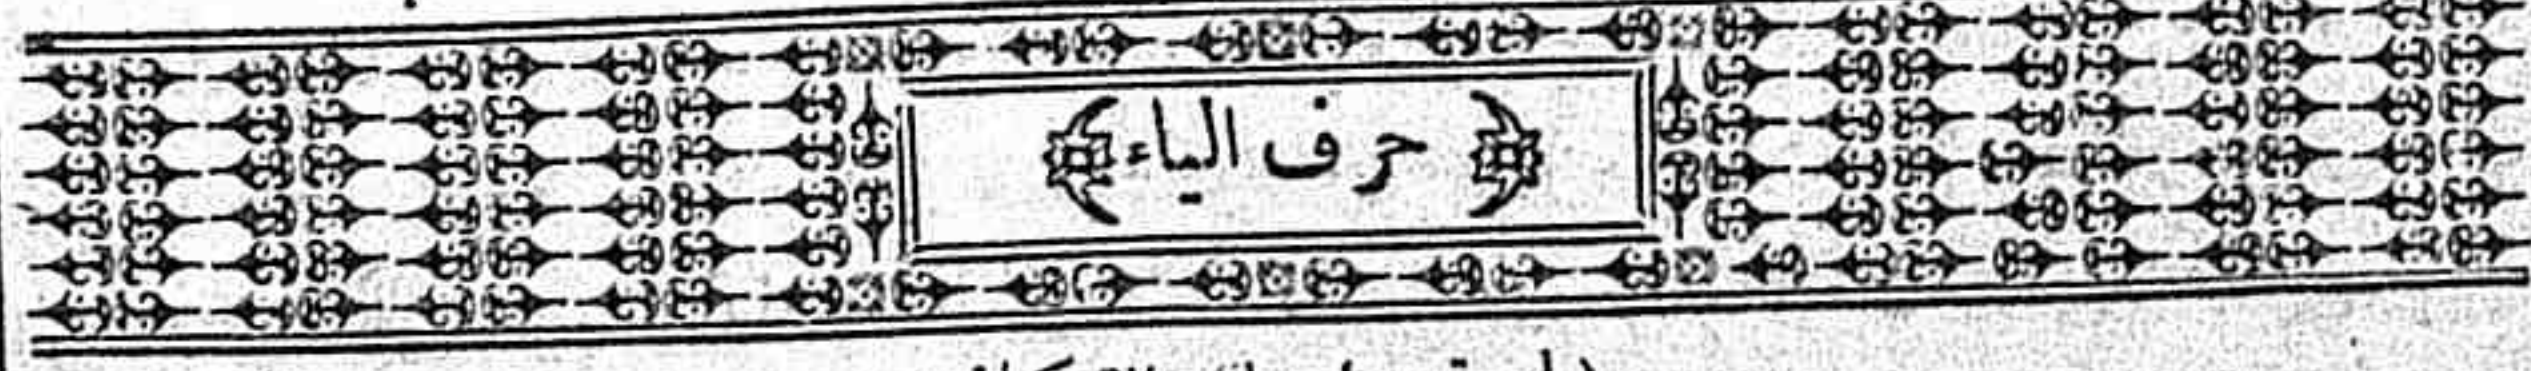 ﴿ حرف الياء ﴾